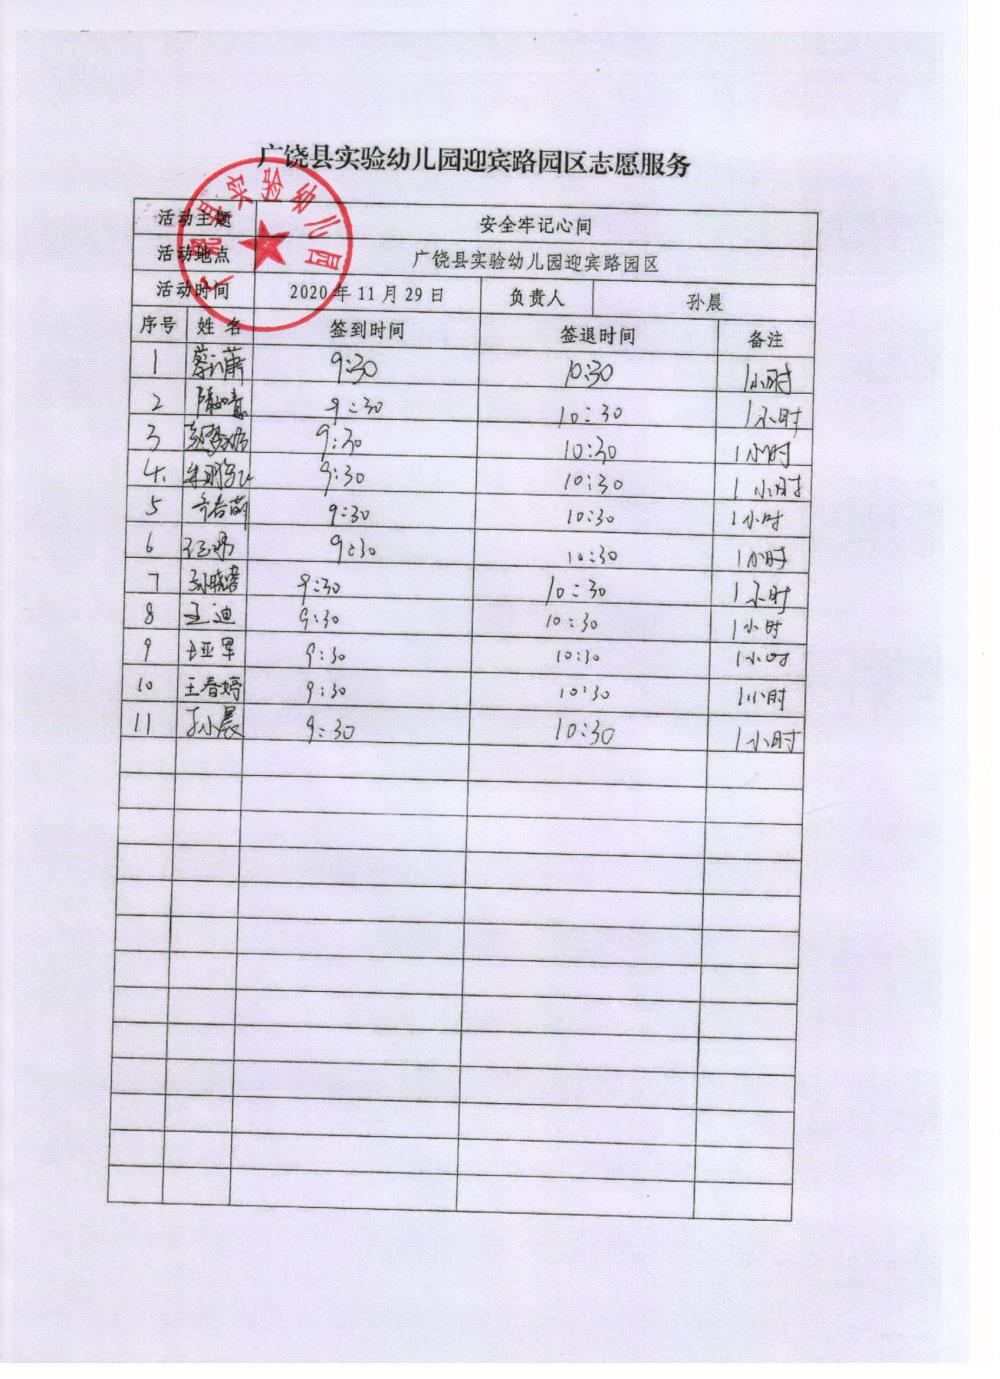 广饶县实验幼儿园迎宾路园区志愿服务
广饶县实验幼儿园
活动主题 安全牢记心间
活动地点 广饶县实验幼儿园迎宾路园区
活动时间 2020 年 11 月 29 日 负责人 孙晨
序号 姓 名 签到时间 签退时间 备注
1 9:30 10:30 1小时
2 9:30 10:30 1小时
3 9:30 10:30 1小时
4. 9:30 10:30 1小时
5 齐春萌 9:30 10:30 1小时
6 9:30 10:30 1小时
7 9:30 10:30 1小时
8 王迪 9:30 10:30 1小时
9 王亚军 9:30 10:30 1小时
10 王春婷 9:30 10:30 1小时
11 孙晨 9:30 10:30 1小时